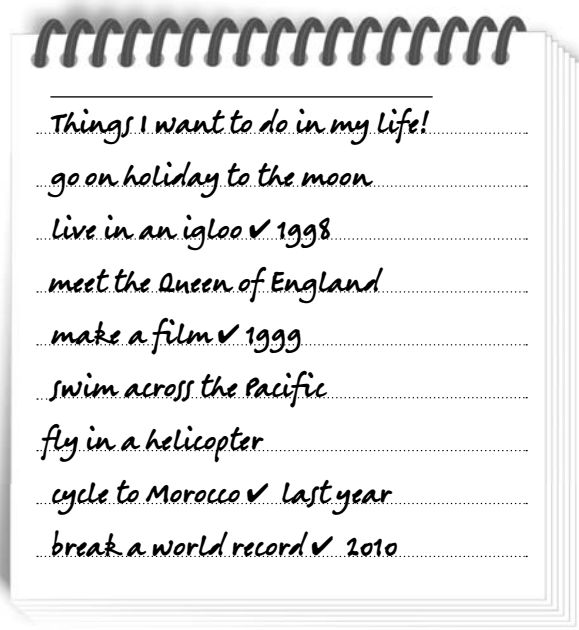 Things I want to do in my life!
go on holiday to the moon
live in an igloo ✔ 1998
meet the Queen of England
make a film ✔ 1999
swim across the Pacific
fly in a helicopter
cycle to Morocco ✔ last year
break a world record ✔ 2010